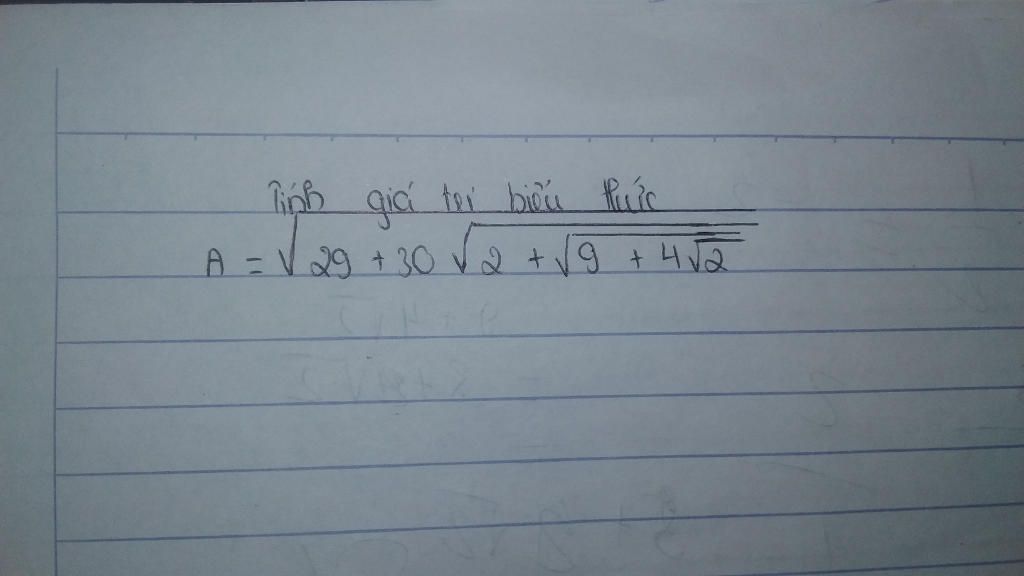 Tính giá trị biểu thức
A = √(29 + 30√(2 + √(9 + 4√2)))